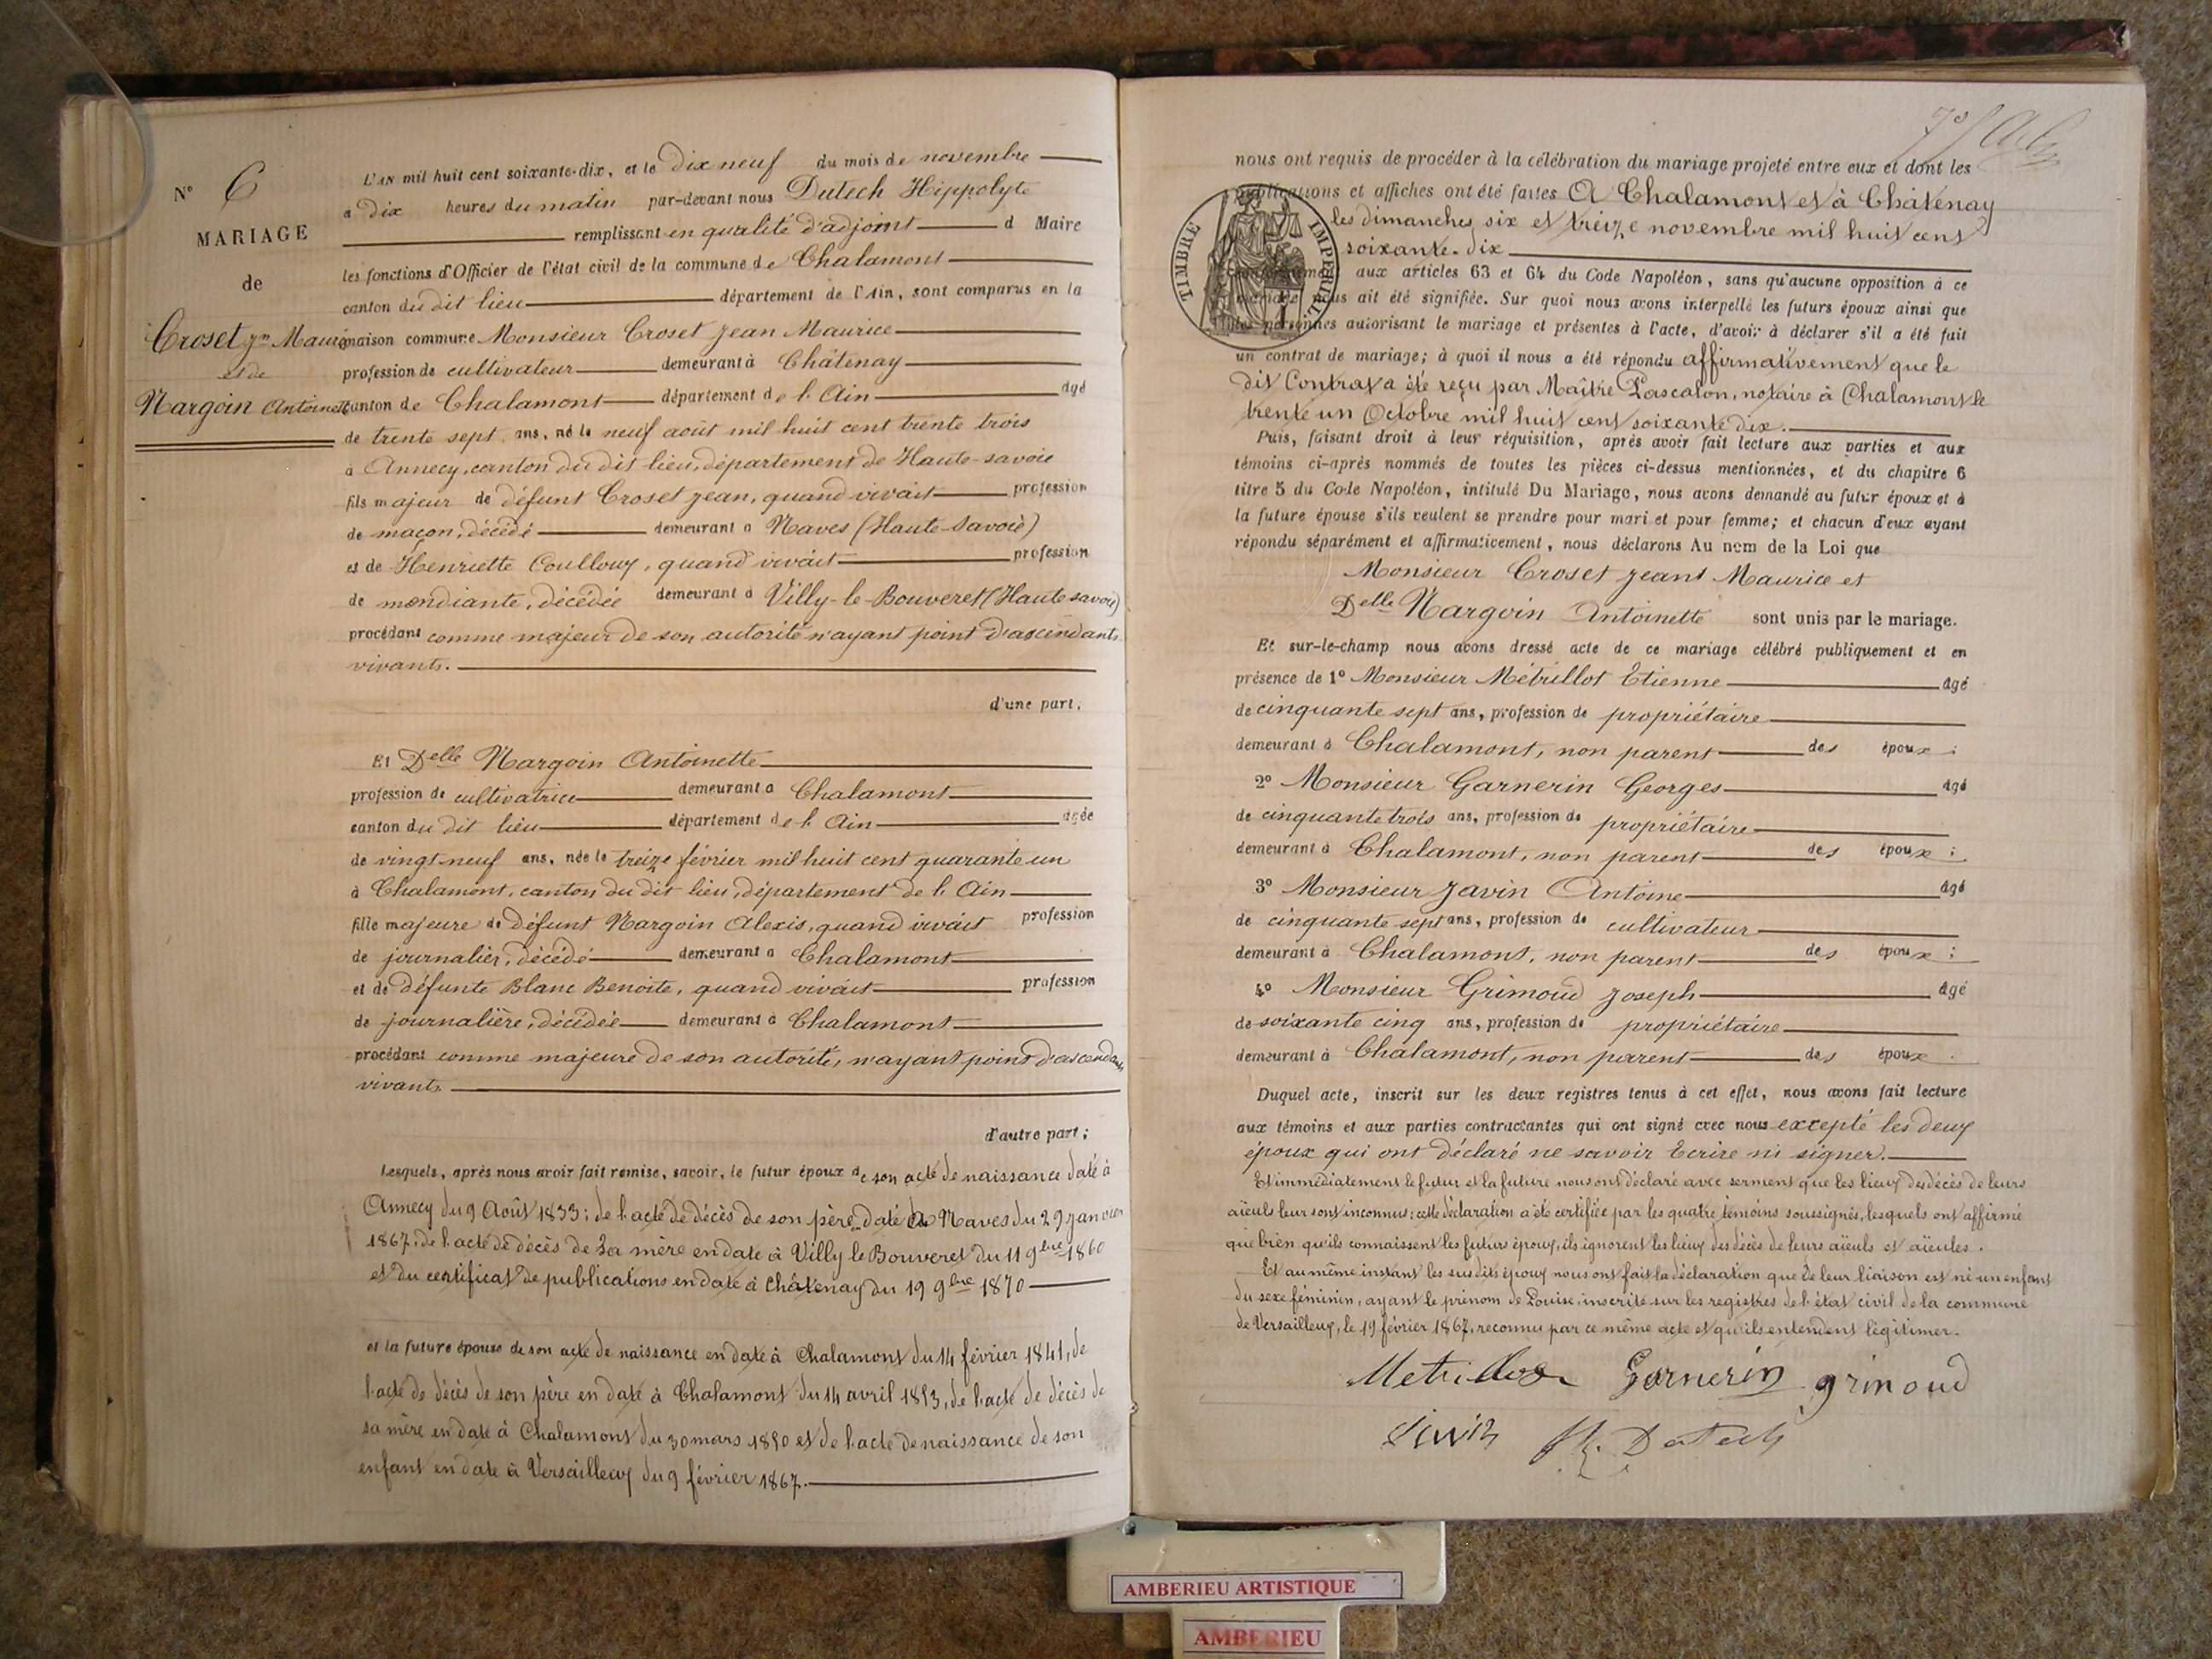 N° 6
MARIAGE
de
Croset Jn Maurice
et de
Nargoin Antoinette
L'AN mil huit cent soixante-dix, et le dix neuf du mois de novembre
a dix heures du matin par-devant nous Dutech Hippolyte
remplissant en qualité d'adjoint d Maire
les fonctions d'Officier de l'état civil de la commune de Chalamont
canton du dit lieu département de l'Ain, sont comparus en la
maison commune Monsieur Croset Jean Maurice
profession de cultivateur demeurant à Châtenay
canton de Chalamont département de l'Ain agé
de trente sept ans, né le neuf août mil huit cent trente trois
à Annecy, canton du dit lieu, département de Haute-savoie
fils majeur de défunt Croset Jean, quand vivait profession
de maçon, décédé demeurant a Naves (Haute-Savoie)
et de Henriette Coullouy, quand vivait profession
de mendiante, décédée demeurant à Villy-le-Bouveret (Haute savoie)
procédant comme majeur de son autorité n'ayant point d'ascendants
vivants.
d'une part,
Et Delle Nargoin Antoinette
profession de cultivatrice demeurant a Chalamont
canton du dit lieu département de l'Ain agée
de vingt-neuf ans, née le treize février mil huit cent quarante un
à Chalamont, canton du dit lieu, département de l'Ain
fille majeure de défunt Nargoin Alexis, quand vivait profession
de journalier, décédé demeurant a Chalamont
et de défunte Blanc Benoite, quand vivait profession
de journalière, décédée demeurant à Chalamont
procédant comme majeure de son autorité, n'ayant point d'ascendants
vivants.
d'autre part;
Lesquels, après nous avoir fait remise, savoir, le futur époux de son acte de naissance daté à
Annecy du 9 Août 1833; de l'acte de décès de son père, daté de Naves du 29 janvier
1867, de l'acte de décès de sa mère en date à Villy le Bouveret du 11 9bre 1860
et du certificat de publications en date à Châtenay du 19 9bre 1870
et la future épouse de son acte de naissance en date à Chalamont du 14 février 1841, de
l'acte de décès de son père en date à Chalamont du 14 avril 1853, de l'acte de décès de
sa mère en date à Chalamont du 30 mars 1850 et de l'acte de naissance de son
enfant en date à Versailleux du 9 février 1867.
nous ont requis de procéder à la célébration du mariage projeté entre eux et dont les
publications et affiches ont été faites A Chalamont et à Châtenay
les dimanches six et treize novembre mil huit cent
soixante-dix
TIMBRE IMPERIAL
conformément aux articles 63 et 64 du Code Napoléon, sans qu'aucune opposition à ce
mariage nous ait été signifiée. Sur quoi nous avons interpellé les futurs époux ainsi que
les personnes autorisant le mariage et présentes à l'acte, d'avoir à déclarer s'il a été fait
un contrat de mariage; à quoi il nous a été répondu affirmativement que le
dit Contrat a été reçu par Maître Pascalon, notaire à Chalamont le
trente un Octobre mil huit cent soixante dix.
Puis, faisant droit à leur réquisition, après avoir fait lecture aux parties et aux
témoins ci-après nommés de toutes les pièces ci-dessus mentionnées, et du chapitre 6
titre 5 du Code Napoléon, intitulé Du Mariage, nous avons demandé au futur époux et à
la future épouse s'ils veulent se prendre pour mari et pour femme; et chacun d'eux ayant
répondu séparément et affirmativement, nous déclarons Au nom de la Loi que
Monsieur Croset Jeant Maurice et
Delle Nargoin Antoinette sont unis par le mariage.
Et sur-le-champ nous avons dressé acte de ce mariage célébré publiquement et en
présence de 1° Monsieur Métrillot Etienne âgé
de cinquante sept ans, profession de propriétaire
demeurant à Chalamont, non parent des époux;
2° Monsieur Garnerin Georges âgé
de cinquante trois ans, profession de propriétaire
demeurant à Chalamont, non parent des époux;
3° Monsieur Javin Antoine âgé
de cinquante sept ans, profession de cultivateur
demeurant à Chalamont, non parent des époux;
4° Monsieur Grimoud Joseph âgé
de soixante cinq ans, profession de propriétaire
demeurant à Chalamont, non parent des époux.
Duquel acte, inscrit sur les deux registres tenus à cet effet, nous avons fait lecture
aux témoins et aux parties contractantes qui ont signé avec nous excepté les deux
époux qui ont déclaré ne savoir Ecrire ni signer.
Et immédiatement le futur et la future nous ont déclaré avec serment que les lieux des décès de leurs
aïeuls leur sont inconnus: cette déclaration a été certifiée par les quatre témoins soussignés, lesquels ont affirmé
que bien qu'ils connaissent les futurs époux, ils ignorent les lieux des décès de leurs aïeuls et aïeules.
Et au même instant les susdits époux nous ont fait la déclaration que de leur liaison est né un enfant
du sexe féminin, ayant le prénom de Louise, inscrite sur les registres de l'état civil de la commune
de Versailleux, le 19 février 1867, reconnu par ce même acte et qu'ils entendent légitimer.
Garnerin grimoud
H. Dutech
AMBERIEU ARTISTIQUE
AMBERIEU